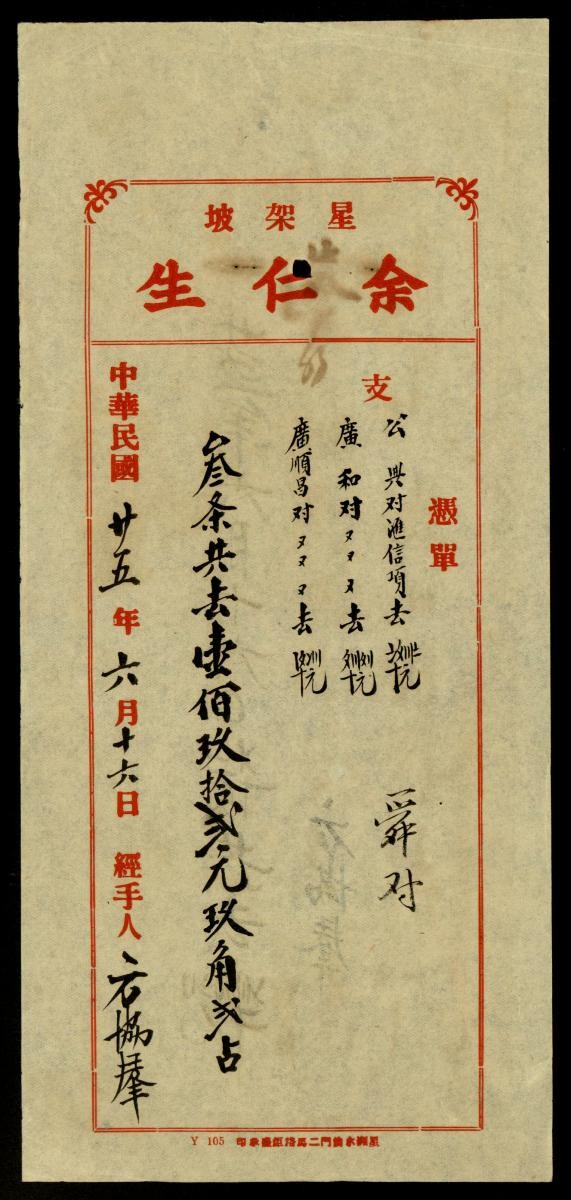 星架坡
余仁生
憑單
支
公興对滙信項去
廣和对〻〻〻去
廣順昌对〻〻〻去
舜对
叁条共去壹佰玖拾弍元玖角弍占
中華民國廿五年六月十六日 經手人
Y 105